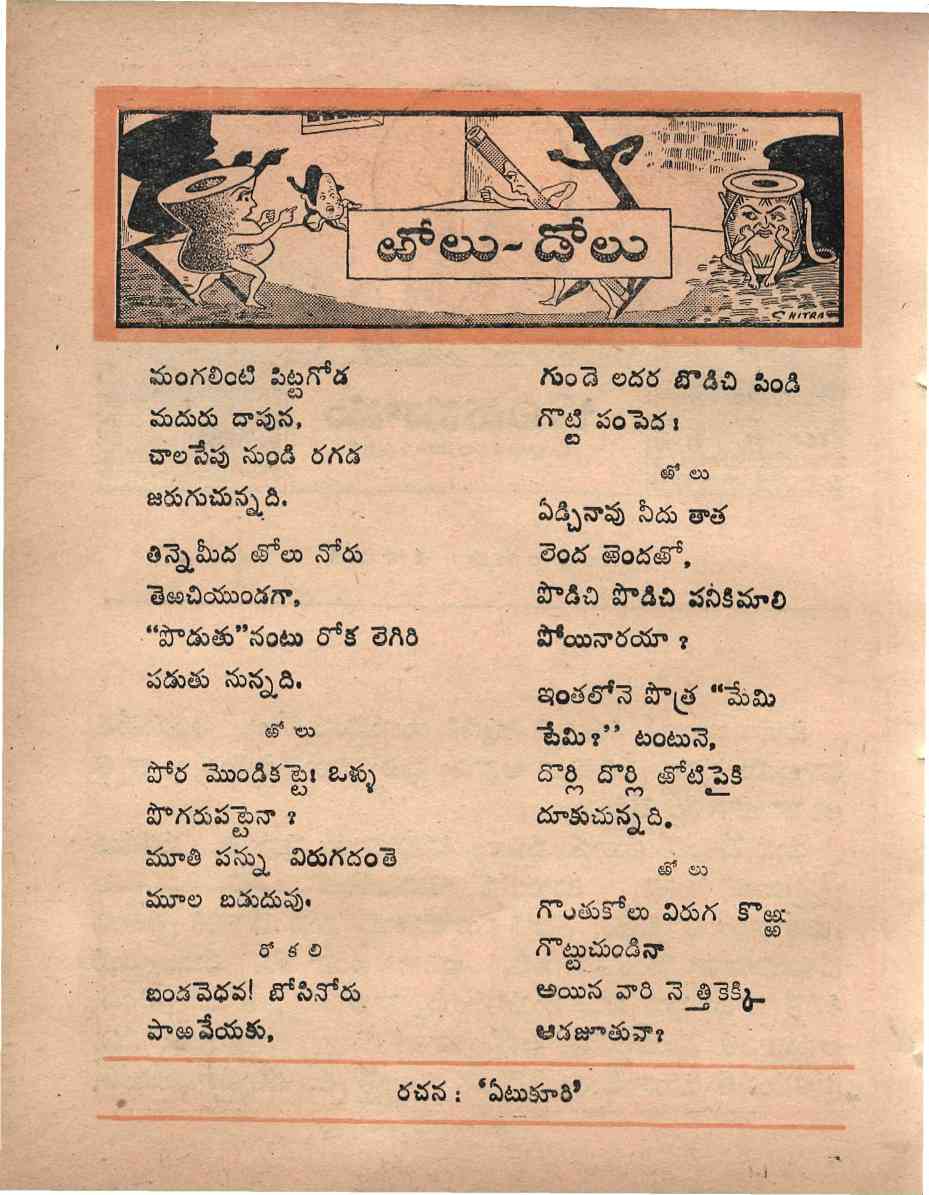 ఱోలు-డోలు
CHITRA
మంగలింటి పిట్టగోడ
మదురు దాపున,
చాలసేపు నుండి రగడ
జరుగుచున్నది.
తిన్నెమీద ఱోలు నోరు
తెఱచియుండగా,
“పొడుతు”నంటు రోక లెగిరి
పడుతు నున్నది.
ఱోలు
పోర మొండికట్టె! ఒళ్ళు
పొగరుపట్టెనా ?
మూతి పన్ను విరుగదంతె
మూల బడుదువు.
రోకలి
బండవెధవ! బోసినోరు
పాఱవేయకు,
గుండె లదర బొడిచి పిండి
గొట్టి పంపెద!
ఱోలు
ఏడ్చినావు నీదు తాత
లెంద ఱెందఱో,
పొడిచి పొడిచి పనికిమాలి
పోయినారయా ?
ఇంతలోనె పొత్ర “మేమి
టేమి?’’ టంటునె,
దొర్లి దొర్లి ఱోటిపైకి
దూకుచున్నది.
ఱోలు
గొంతుకోలు విరుగ కొఱ్ఱు
గొట్టుచుండినా
అయిన వారి నెత్తికెక్కి
ఆడజూతువా?
రచన : ‘ఏటుకూరి’